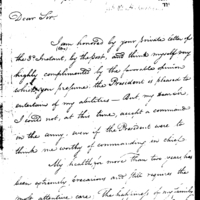 Dear Sir.
I am honored by your private letter of
the 3d Instant, by the post, and think myself very
highly complimented by the favorable opinion
which you profess the President is pleased to
entertain of my abilities — But, my dear Sir,
I could not, at this time, accept a command
in the army, even if the President were to
think me worthy of commanding in chief.
My health for more than two years has
been extremely precarious and this requires the
most attentive care. The happiness of my family